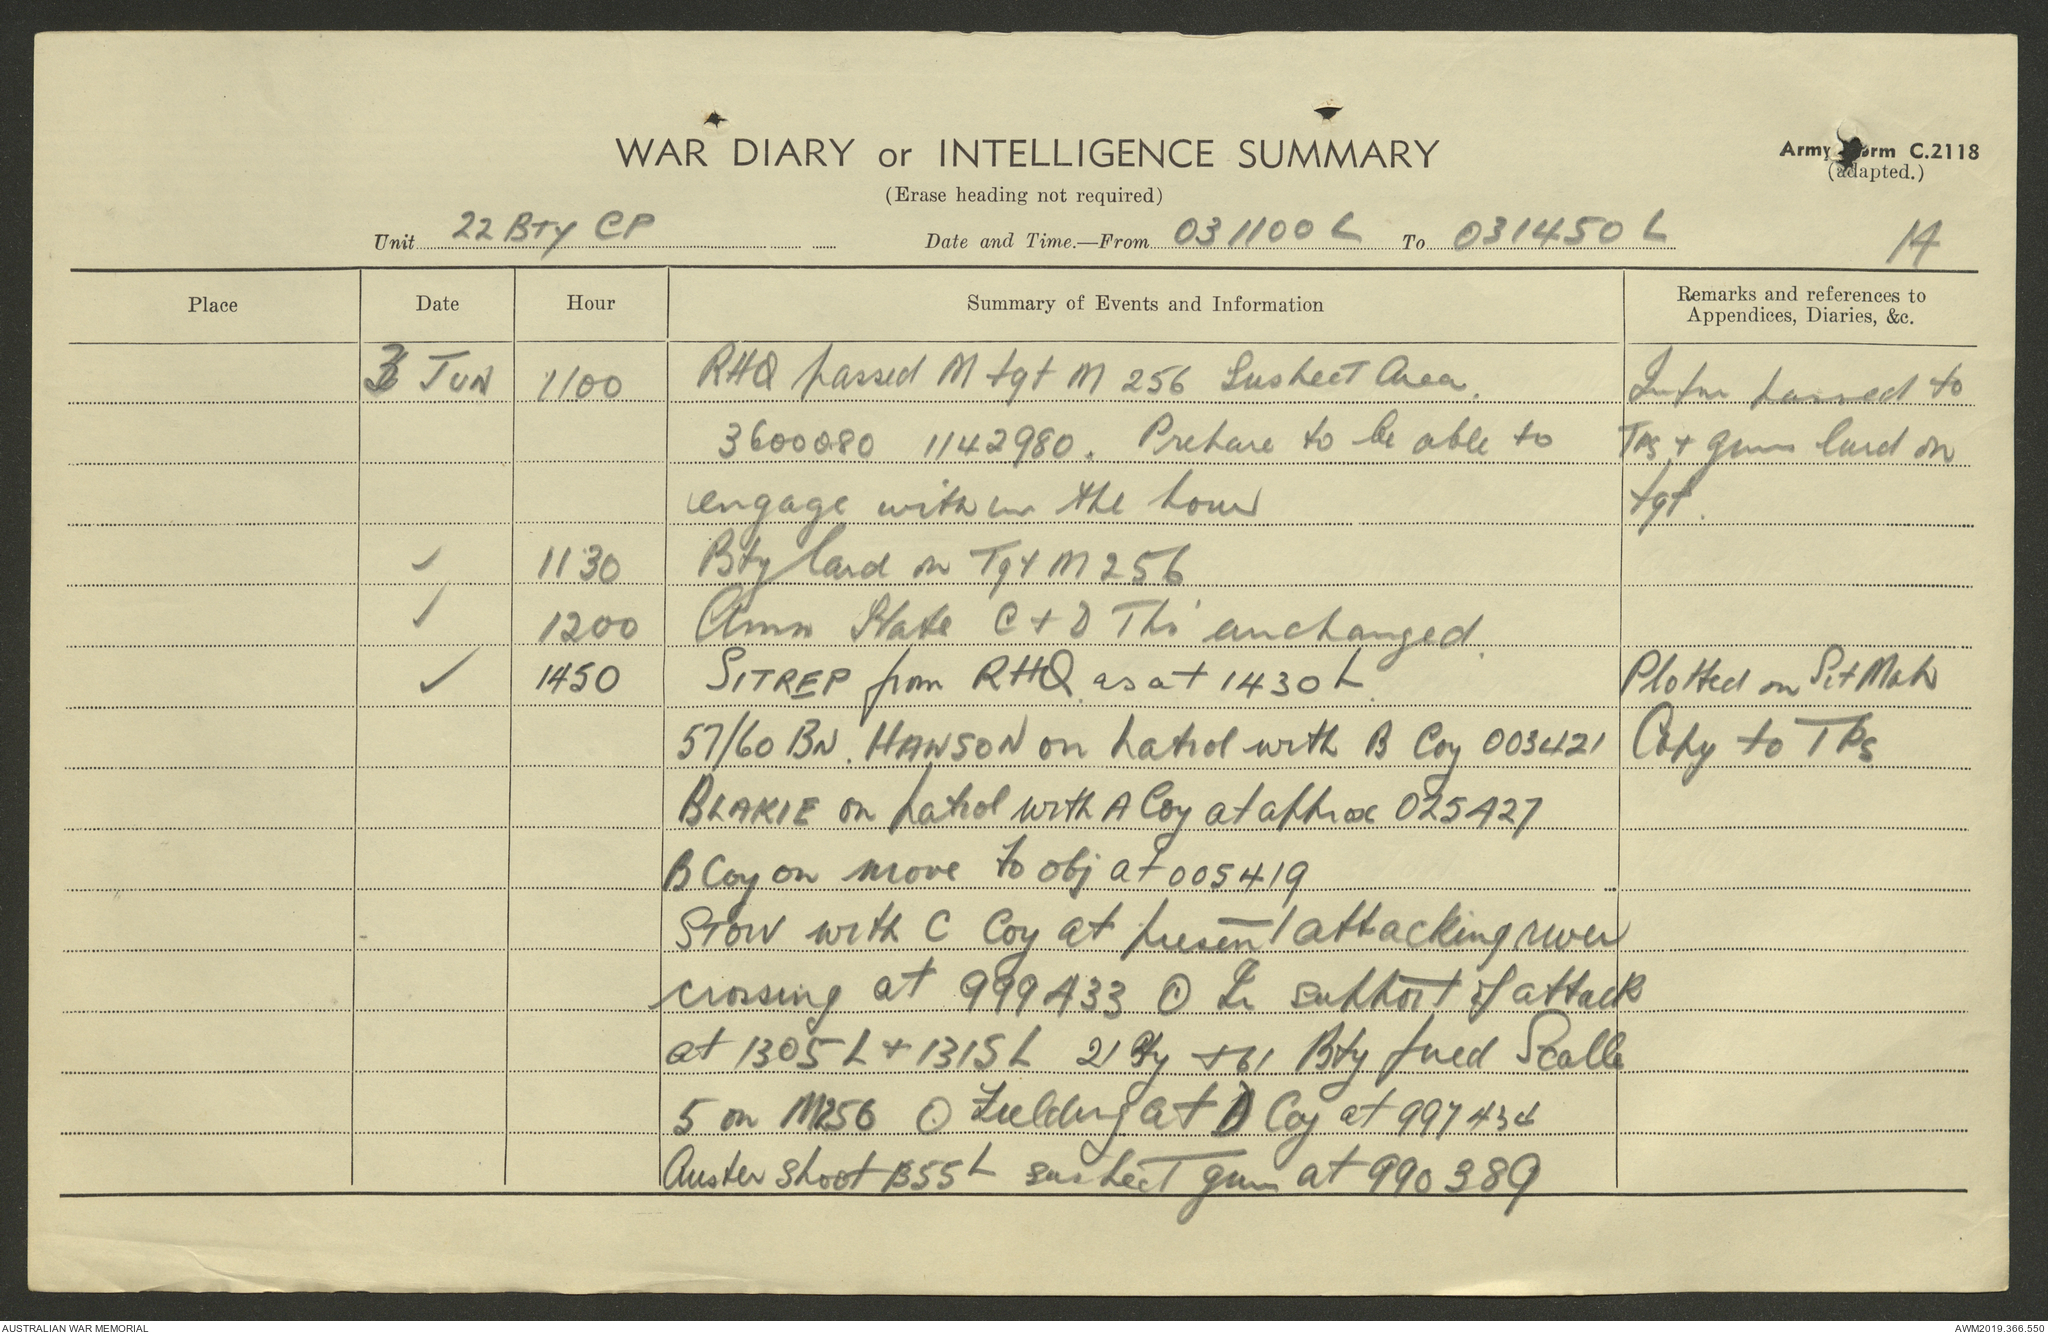 WAR DIARY or INTELLIGENCE SUMMARY
Army Form C.2118
(adapted.)
(Erase heading not required)
Unit 22 Bty CP Date and Time.—From 031100 L To 031450 L 14
Place Date Hour Summary of Events and Information Remarks and references to Appendices, Diaries, &c.
3 Jun 1100 RHQ passed M tgt M 256 Suspect Area. Infm passed to
3600080 1142980. Prepare to be able to Tps + guns laid on
engage within the hour tgt.
✓ 1130 Bty laid on Tgt M 256
✓ 1200 Ammn State C + D Tps unchanged.
✓ 1450 SITREP from RHQ as at 1430 L Plotted on Sit Map
57/60 BN. HAWSON on patrol with B Coy 003421 Copy to Tps
BLAKIE on patrol with A Coy at approx 025427
B Coy on move to obj at 005419
STOW with C Coy at present attacking river
crossing at 999433 ⊙ In support of attack
at 1305 L + 1315 L 21 Bty + 61 Bty fired Scale
5 on M256 ⊙ Fielding at D Coy at 997434
Auster shoot 1355 L suspect gun at 990389
AUSTRALIAN WAR MEMORIAL
AWM2019.366.550